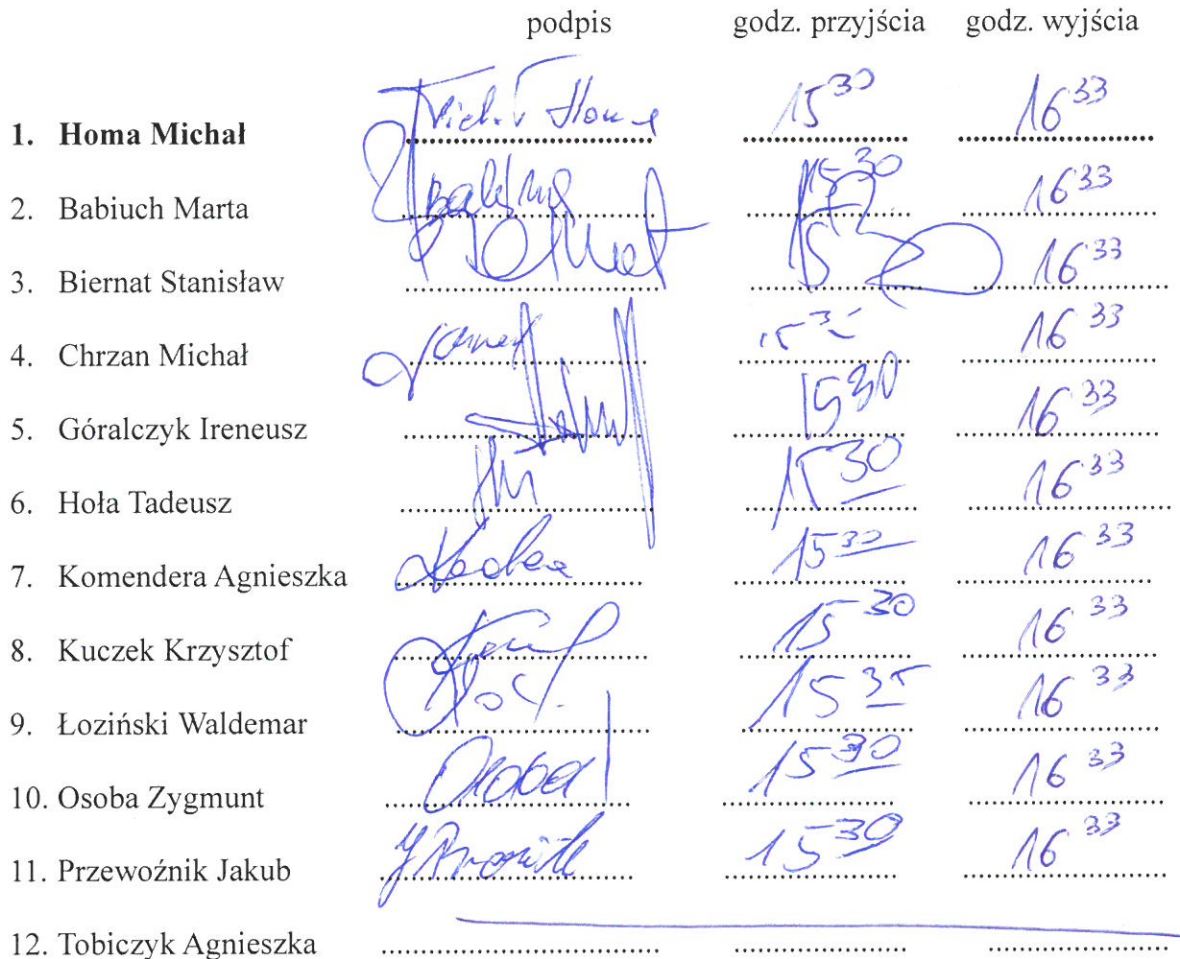 podpis godz. przyjścia godz. wyjścia
1. Homa Michał 15 30 16 33
2. Babiuch Marta 15 30 16 33
3. Biernat Stanisław 15 16 33
4. Chrzan Michał 16 33
5. Góralczyk Ireneusz 15 30 16 33
6. Hoła Tadeusz 15 30 16 33
7. Komendera Agnieszka 15 30 16 33
8. Kuczek Krzysztof 15 30 16 33
9. Łoziński Waldemar 15 35 16 33
10. Osoba Zygmunt Osoba 15 30 16 33
11. Przewoźnik Jakub 15 30 16 33
12. Tobiczyk Agnieszka